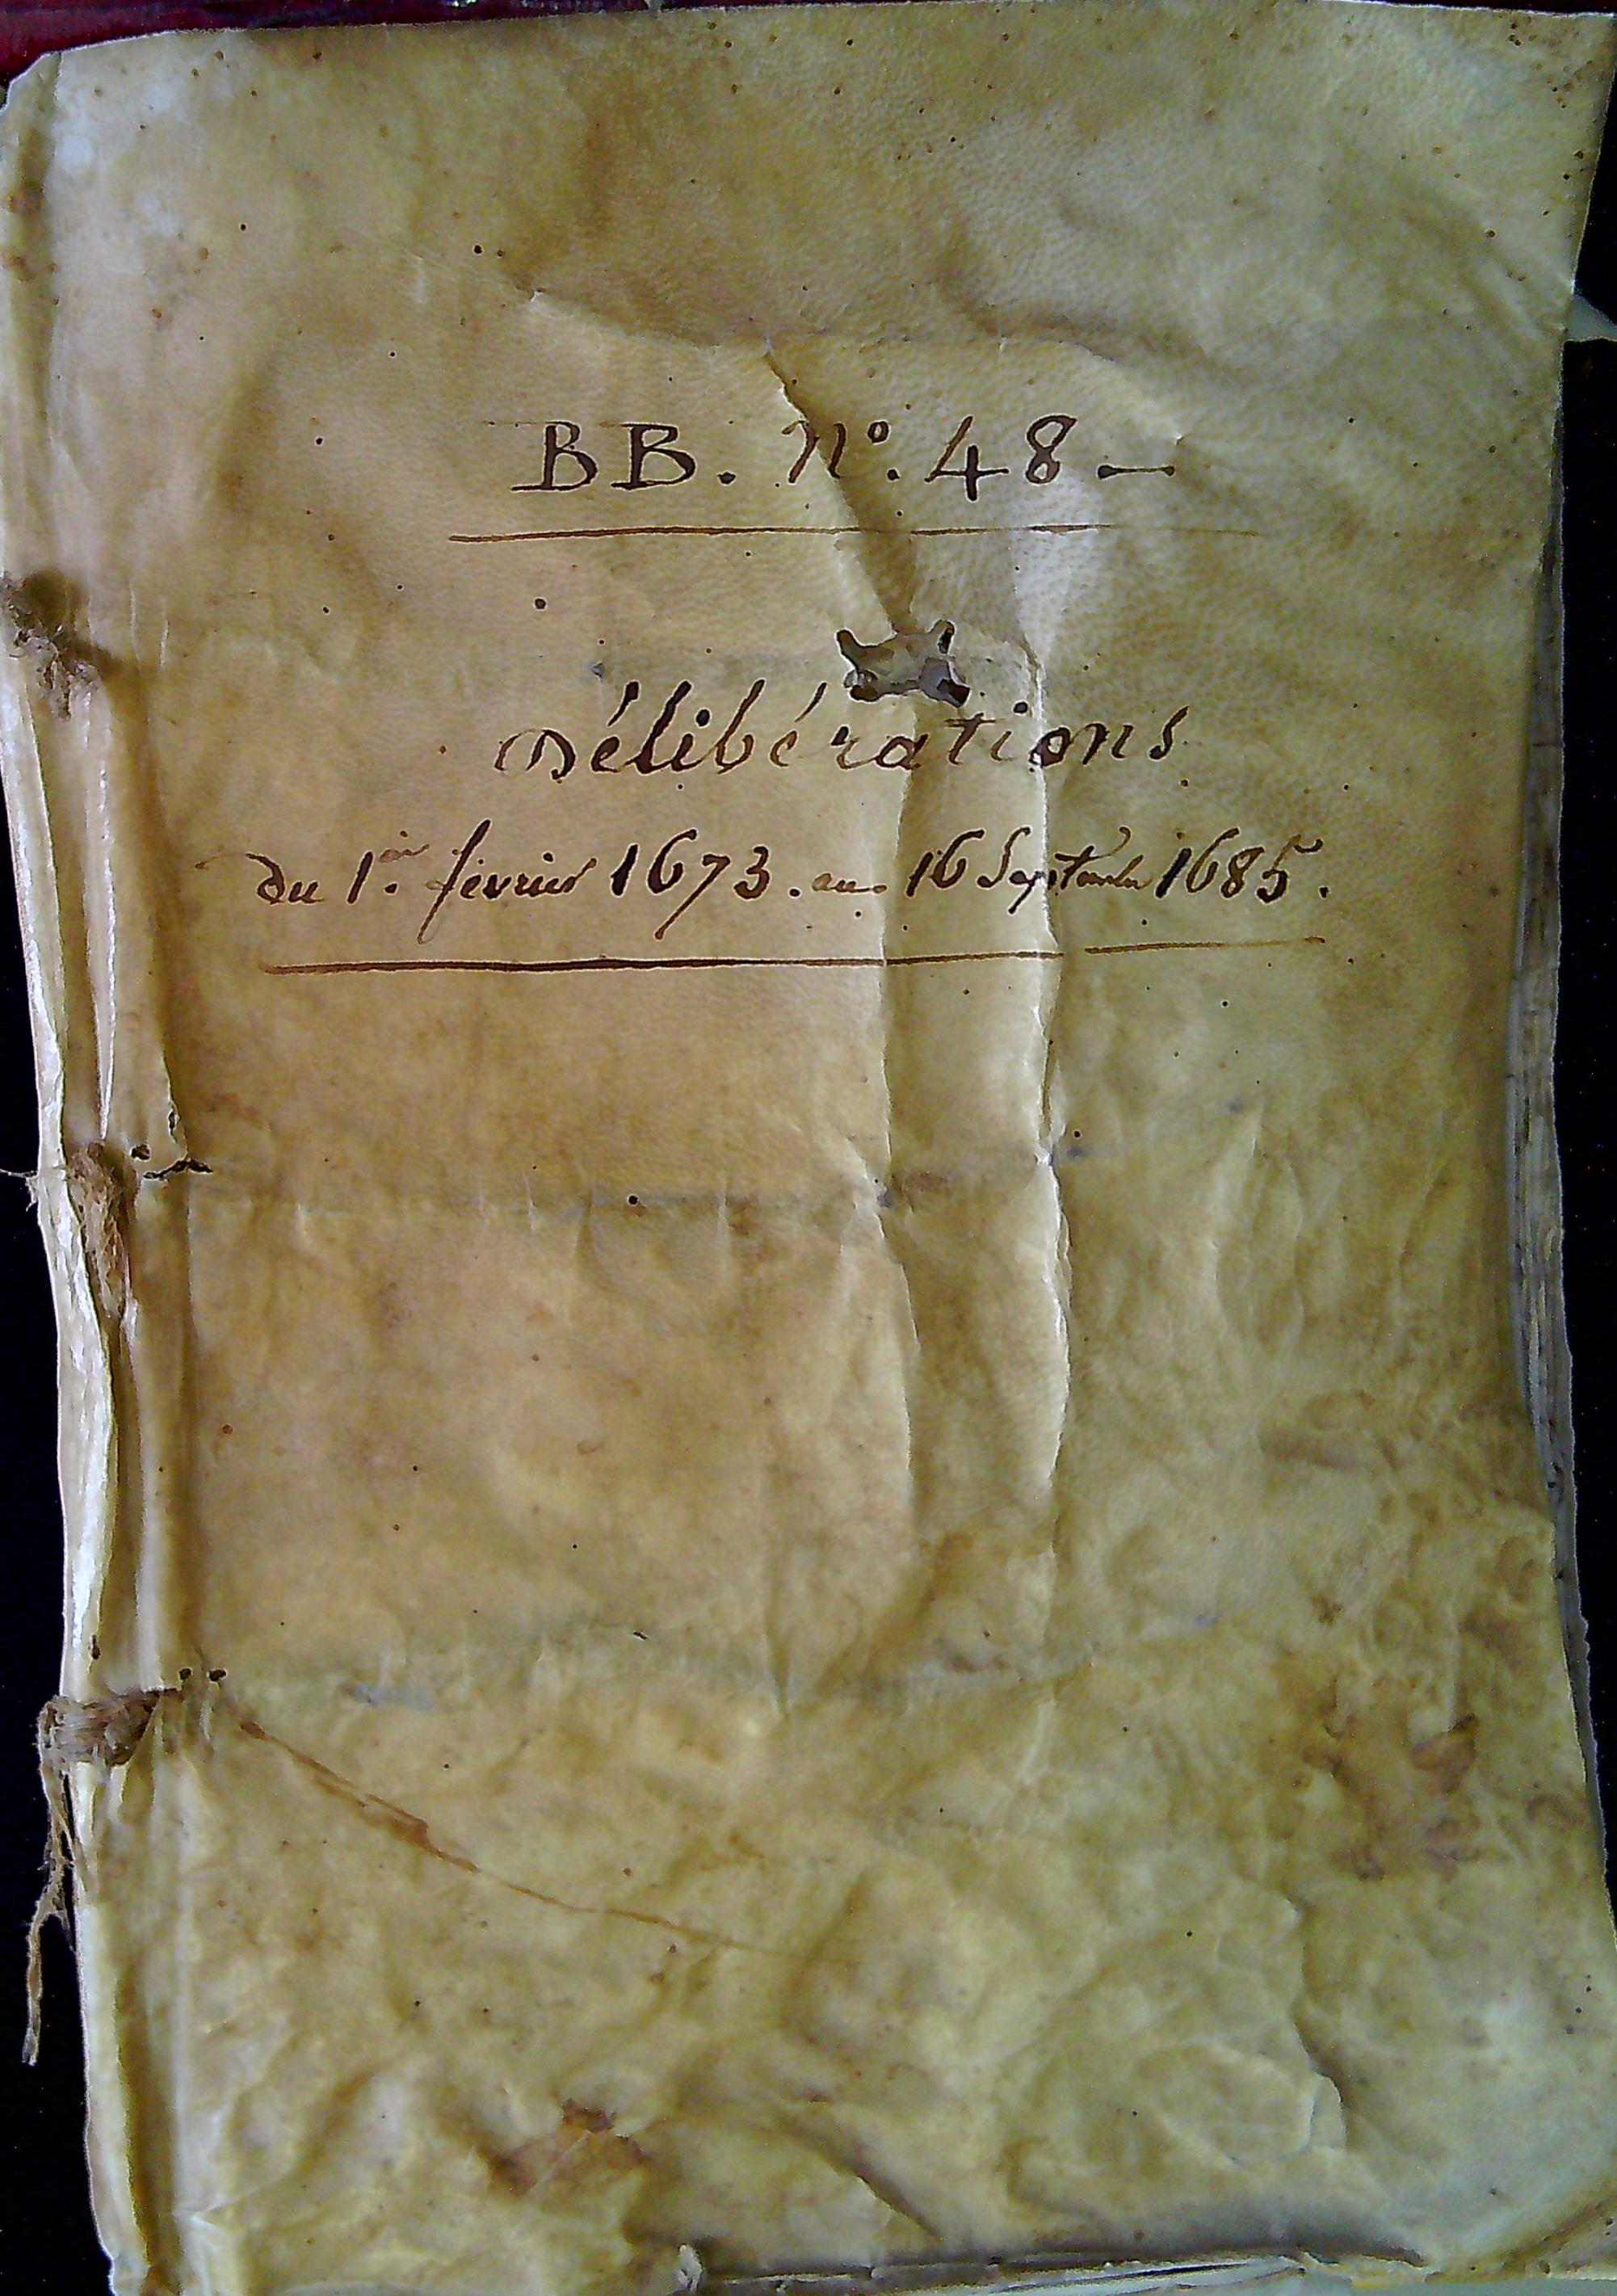 BB. N°. 48 —
Délibérations
du 1.er février 1673. au 16 Septembre 1685.